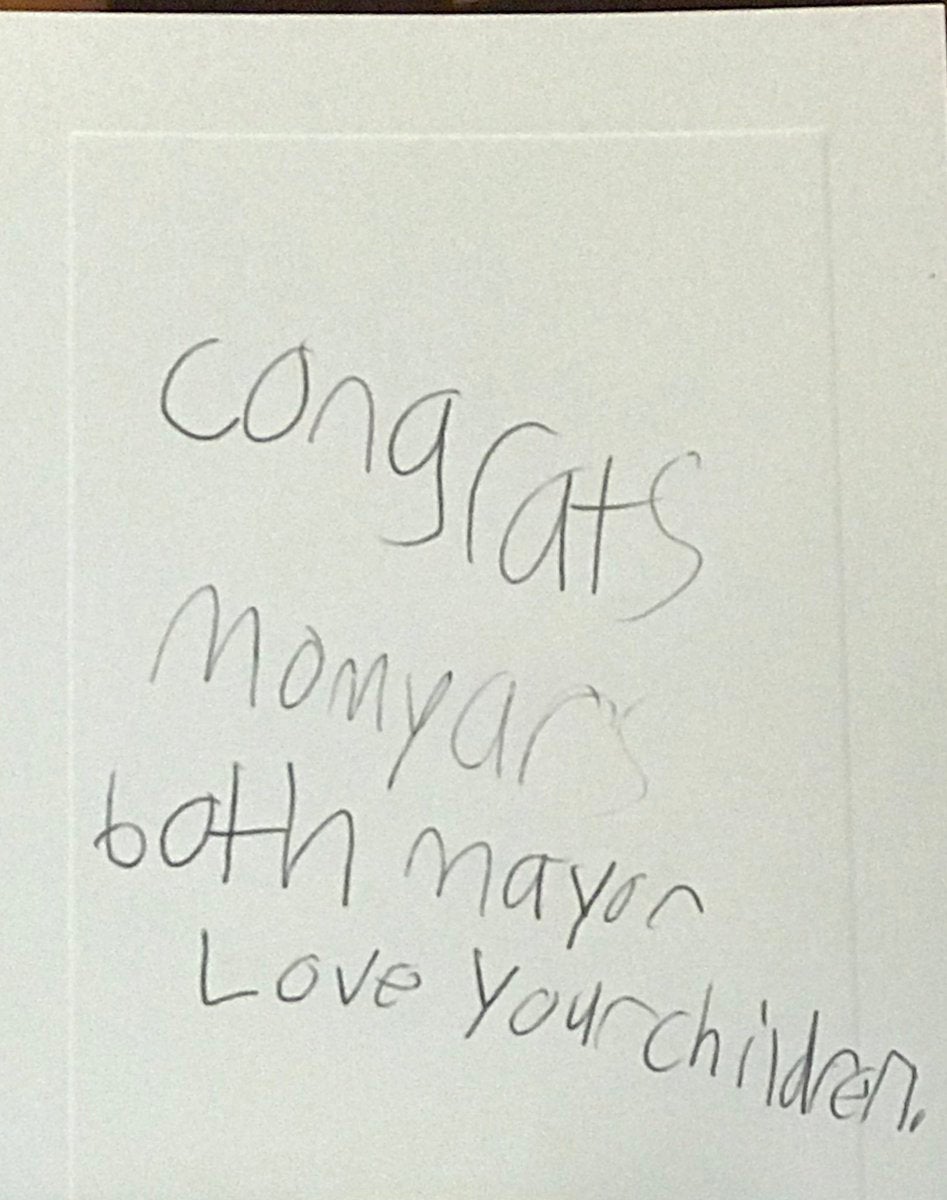 congrats
Momyars
both mayor
Love Yourchildren.